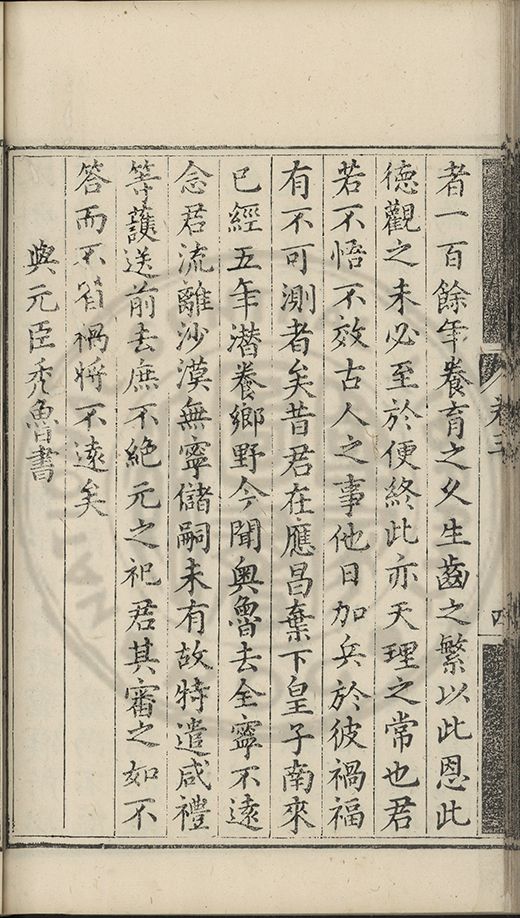 卷三
四
者一百餘年養育之久生齒之繁以此恩此
德觀之未必至於便終此亦天理之常也君
若不悟不效古人之事他日加兵於彼禍福
有不可測者矣昔君在應昌棄下皇子南來
已經五年潜養鄉野今聞奧魯去全寧不遠
念君流離沙漠無寧儲嗣未有故特遣咸禮
等護送前去庶不絶元之祀君其審之如不
答而不省禍將不遠矣
與元臣秃魯書